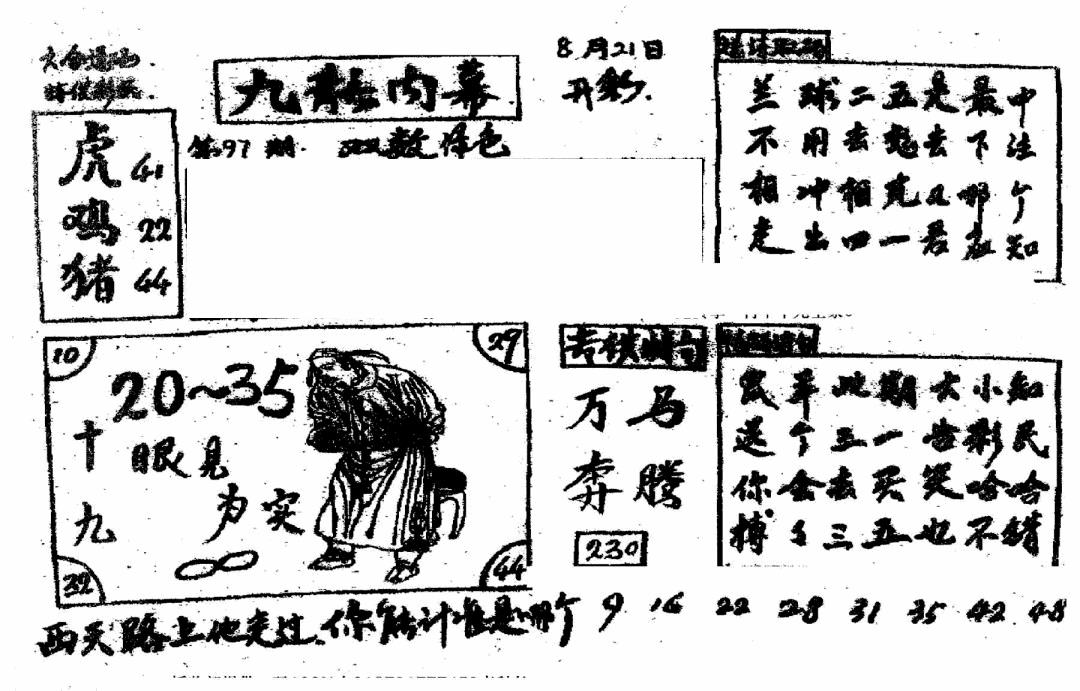 8月21日
开彩.
九龙内幕
第97期. 双数绿色
虎 41
鸡 22
猪 44
兰球二五是最中
不用去愁去下注
相冲相克见哪个
走出四一君应知
10
29
20~35
十九
眼见
为实
32
44
万马
奔腾
230
鼠羊此期大小知
送个三一告彩民
你会去买笑哈哈
搏个三五也不错
西天路上他走过.你能计准是哪个
9 16 22 28 31 35 42 48